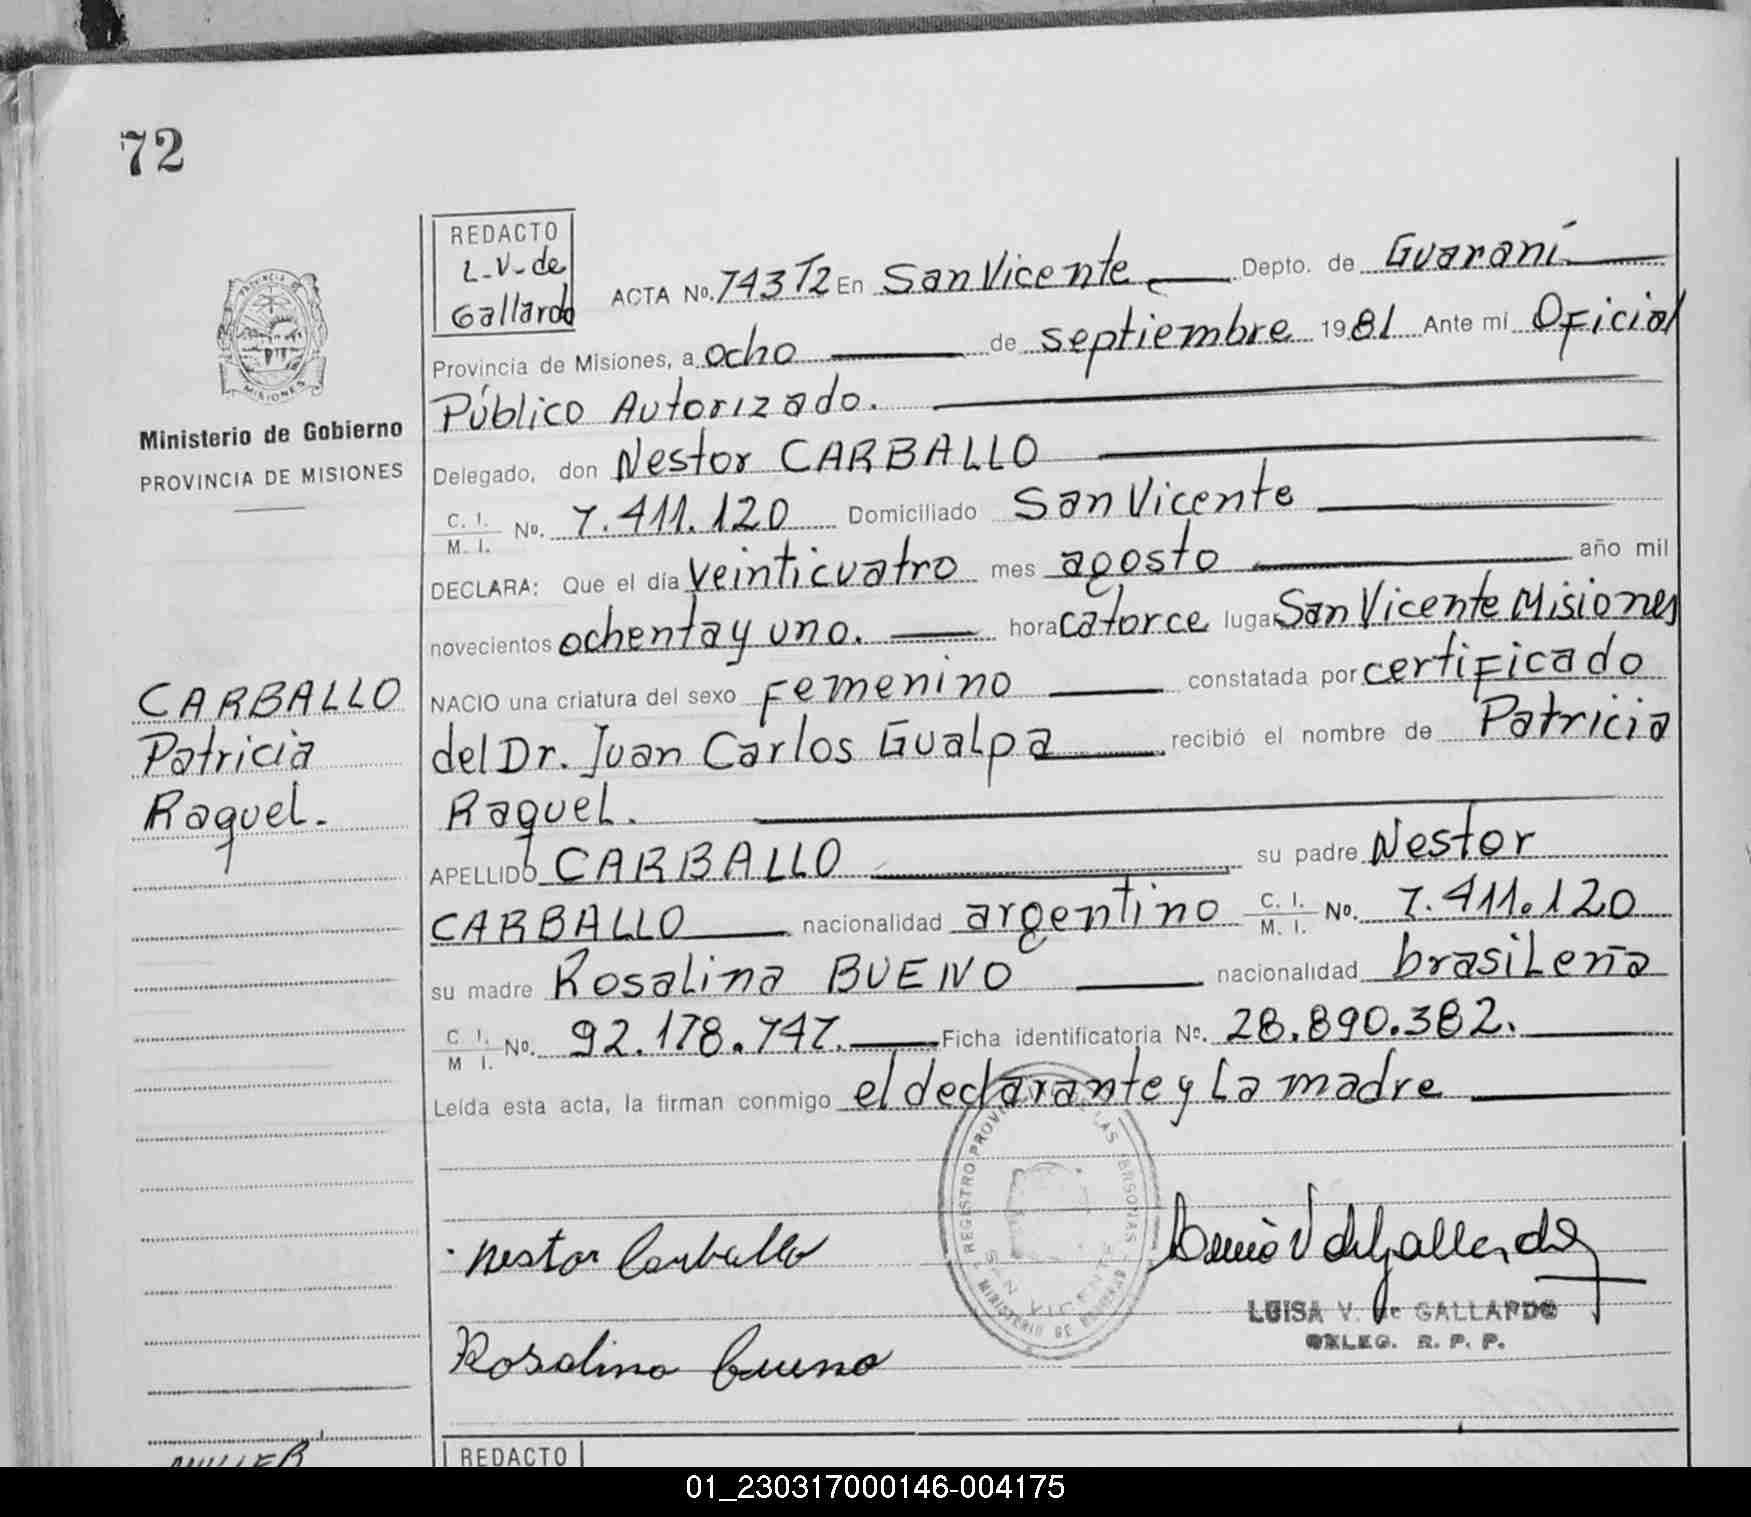 72
REDACTO
L-V-de
Gallardo
ACTA No. 743 T2 En San Vicente Depto. de Guaraní
Provincia de Misiones, a ocho de septiembre 1981 Ante mí Oficial
Público Autorizado.
Delegado, don Nestor CARBALLO
C. I. / M. I. No. 7.411.120 Domiciliado San Vicente
DECLARA: Que el día veinticuatro mes agosto año mil
novecientos ochenta y uno. hora catorce lugar San Vicente Misiones
NACIO una criatura del sexo Femenino constatada por certificado
del Dr. Juan Carlos Gualpa recibió el nombre de Patricia
Raquel.
APELLIDO CARBALLO su padre Nestor
CARBALLO nacionalidad argentino C. I. / M. I. No. 7.411.120
su madre Rosalina BUENO nacionalidad brasileña
C. I. / M. I. No. 92.178.747. Ficha identificatoria No. 28.890.382.
Leída esta acta, la firman conmigo el declarante y la madre
PROVINCIA
MISIONES
Ministerio de Gobierno
PROVINCIA DE MISIONES
CARBALLO
Patricia
Raquel.
Nestor Carballo
Rosalina Bueno
REGISTRO PROVINCIAL DE LAS PERSONAS
SAN VICENTE
MINISTERIO DE
LUISA V. de GALLARDO
DELEG. R. P. P.
REDACTO
01_230317000146-004175